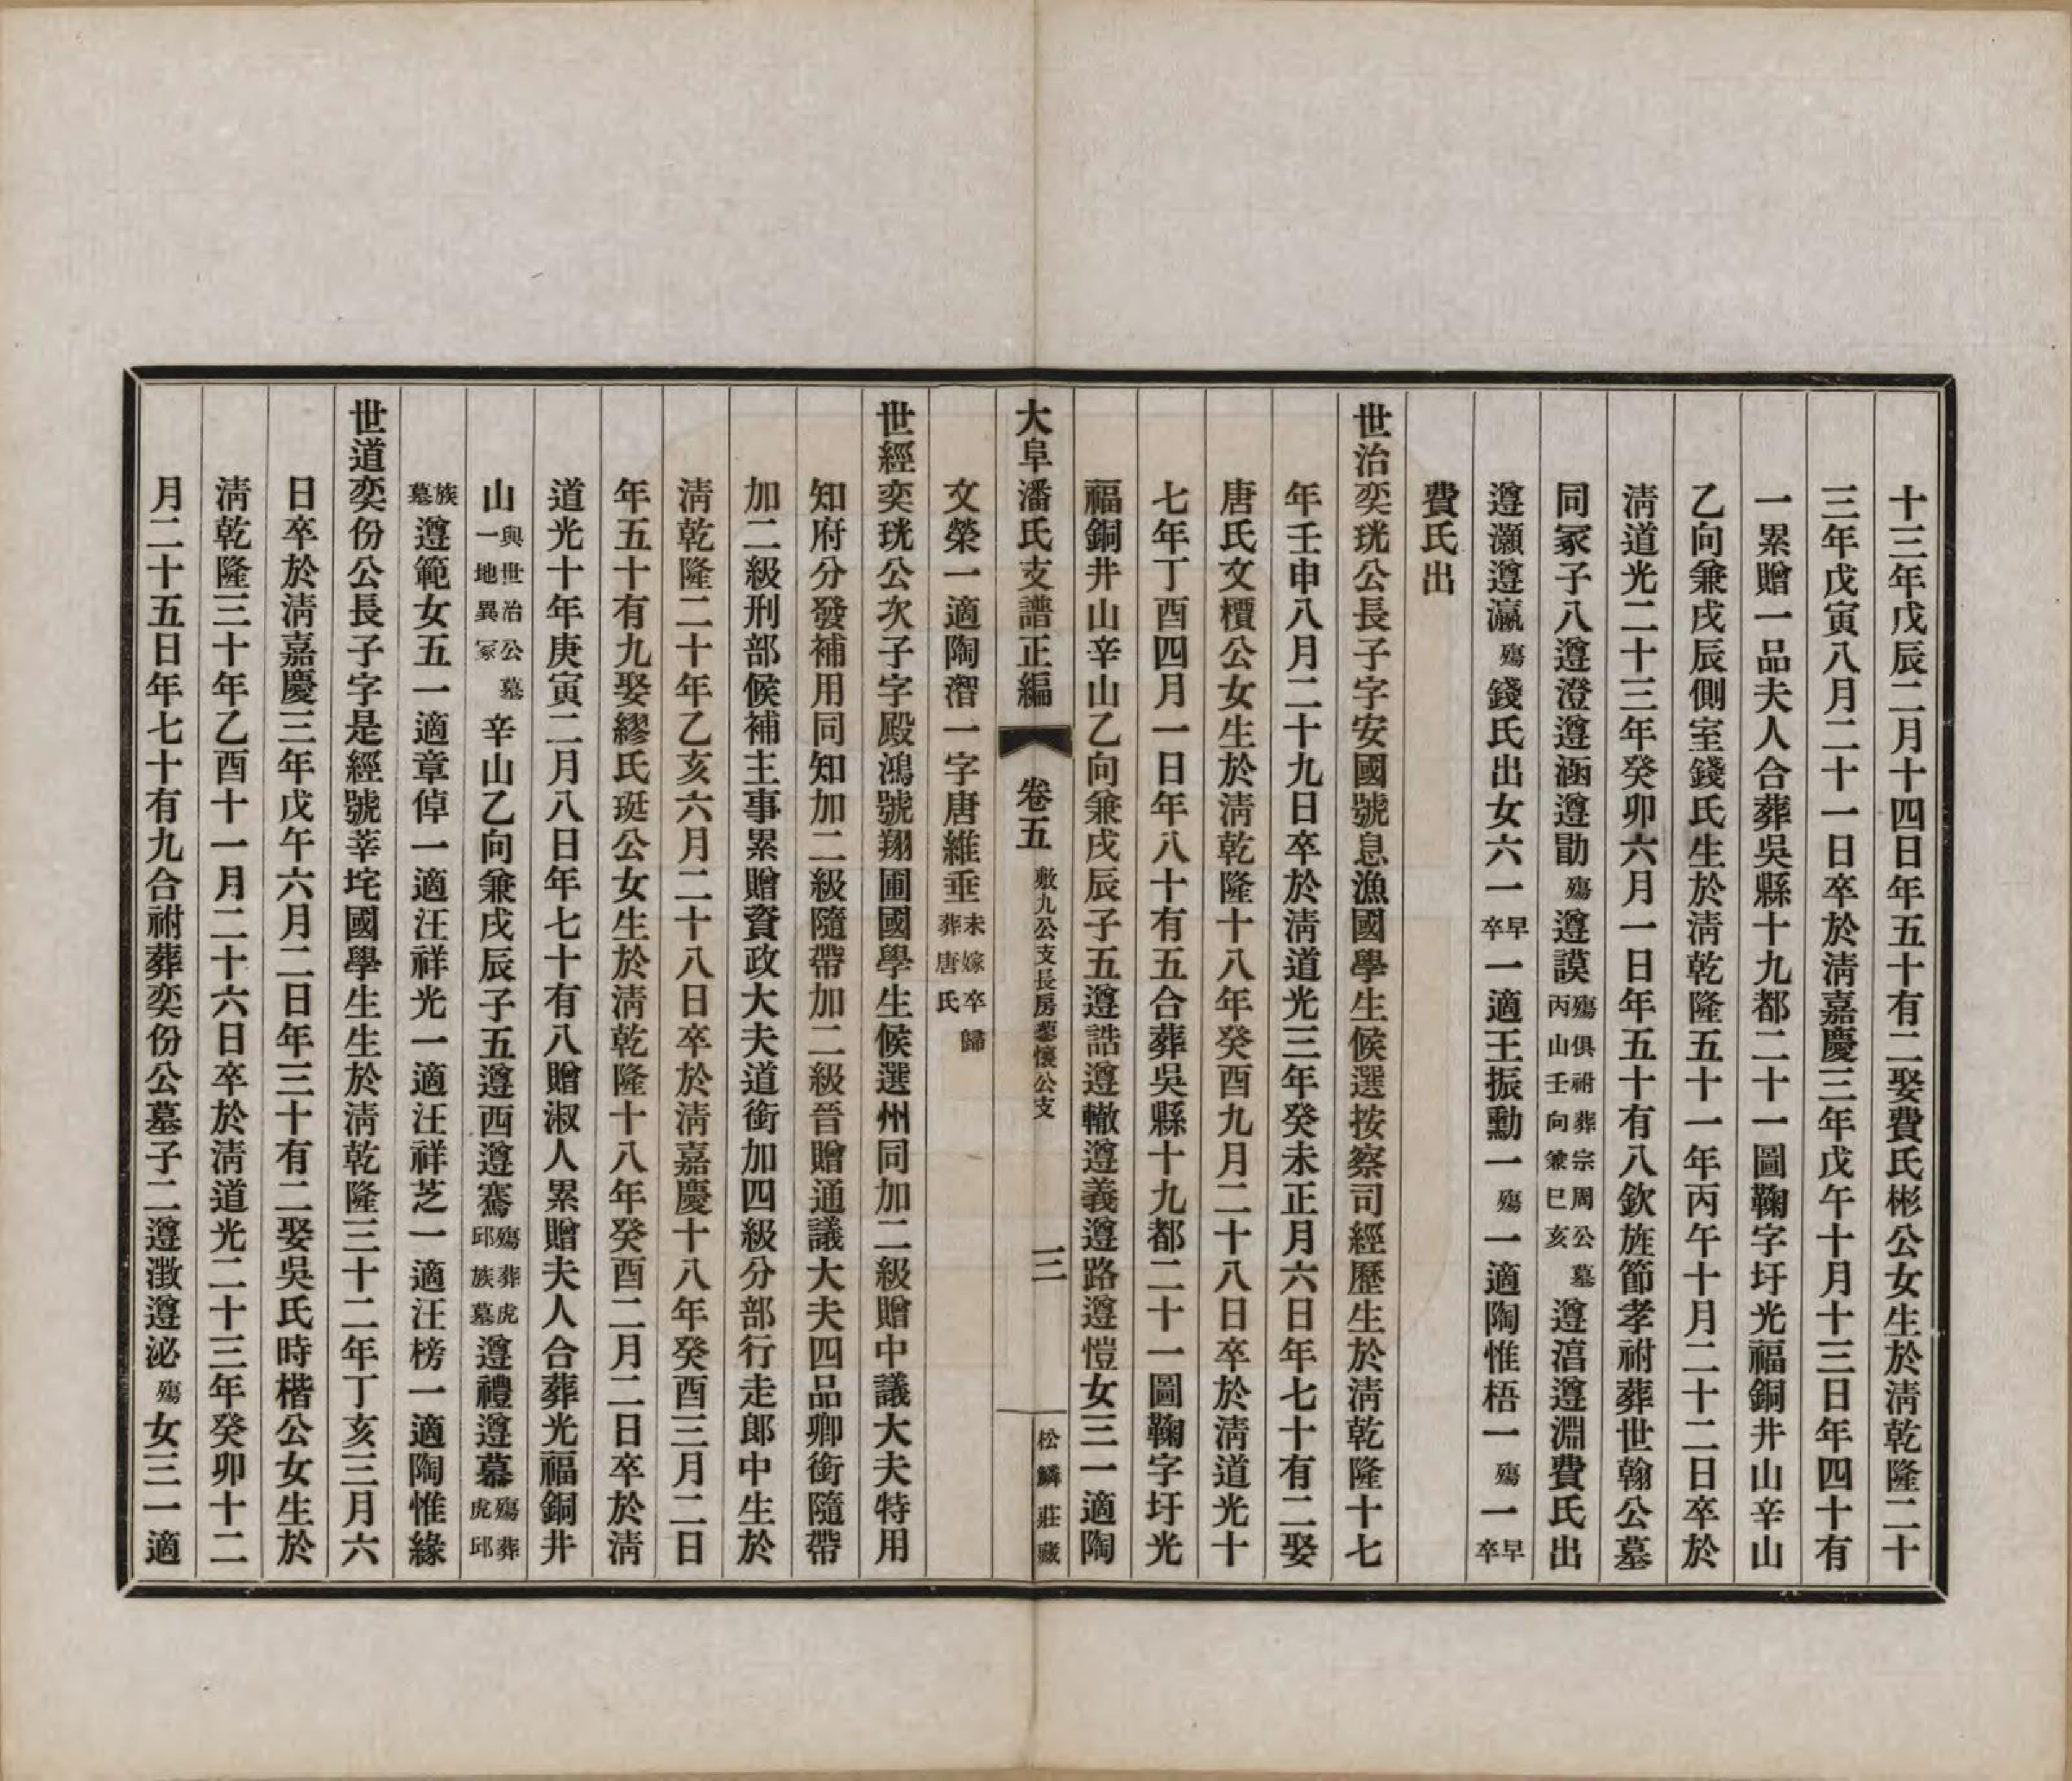 十三年戊辰二月十四日年五十有二娶費氏彬公女生於清乾隆二十
三年戊寅八月二十一日卒於清嘉慶三年戊午十月十三日年四十有
一累贈一品夫人合葬吳縣十九都二十一圖鞠字圩光福銅井山辛山
乙向兼戌辰側室錢氏生於清乾隆五十一年丙午十月二十二日卒於
清道光二十三年癸卯六月一日年五十有八欽旌節孝祔葬世翰公墓
同冢子八遵澄遵涵遵勖殤遵謨殤俱祔葬宗周公墓丙山壬向兼巳亥遵涪遵淵費氏出
遵灝遵瀛殤錢氏出女六一早卒一適王振勳一殤一適陶惟梧一殤一早卒
費氏出
世治奕珖公長子字安國號息漁國學生候選按察司經歷生於清乾隆十七
年壬申八月二十九日卒於清道光三年癸未正月六日年七十有二娶
唐氏文檟公女生於清乾隆十八年癸酉九月二十八日卒於清道光十
七年丁酉四月一日年八十有五合葬吳縣十九都二十一圖鞠字圩光
福銅井山辛山乙向兼戌辰子五遵誥遵轍遵義遵路遵愷女三一適陶
大阜潘氏支譜正編 卷五 敷九公支長房蓼懷公支 三 松鱗莊藏
文榮一適陶溍一字唐維垂未嫁卒歸葬唐氏
世經奕珖公次子字殿鴻號翔圃國學生候選州同加二級贈中議大夫特用
知府分發補用同知加二級隨帶加二級晉贈通議大夫四品卿銜隨帶
加二級刑部候補主事累贈資政大夫道銜加四級分部行走郎中生於
清乾隆二十年乙亥六月二十八日卒於清嘉慶十八年癸酉三月二日
年五十有九娶繆氏珽公女生於清乾隆十八年癸酉二月二日卒於清
道光十年庚寅二月八日年七十有八贈淑人累贈夫人合葬光福銅井
山與世治公墓一地異冢辛山乙向兼戌辰子五遵西遵騫殤葬虎邱族墓遵禮遵慕殤葬虎邱
族墓遵範女五一適章倬一適汪祥光一適汪祥芝一適汪榜一適陶惟緣
世道奕份公長子字是經號莘垞國學生生於清乾隆三十二年丁亥三月六
日卒於清嘉慶三年戊午六月二日年三十有二娶吳氏時楷公女生於
清乾隆三十年乙酉十一月二十六日卒於清道光二十三年癸卯十二
月二十五日年七十有九合祔葬奕份公墓子二遵澂遵泌殤女三一適